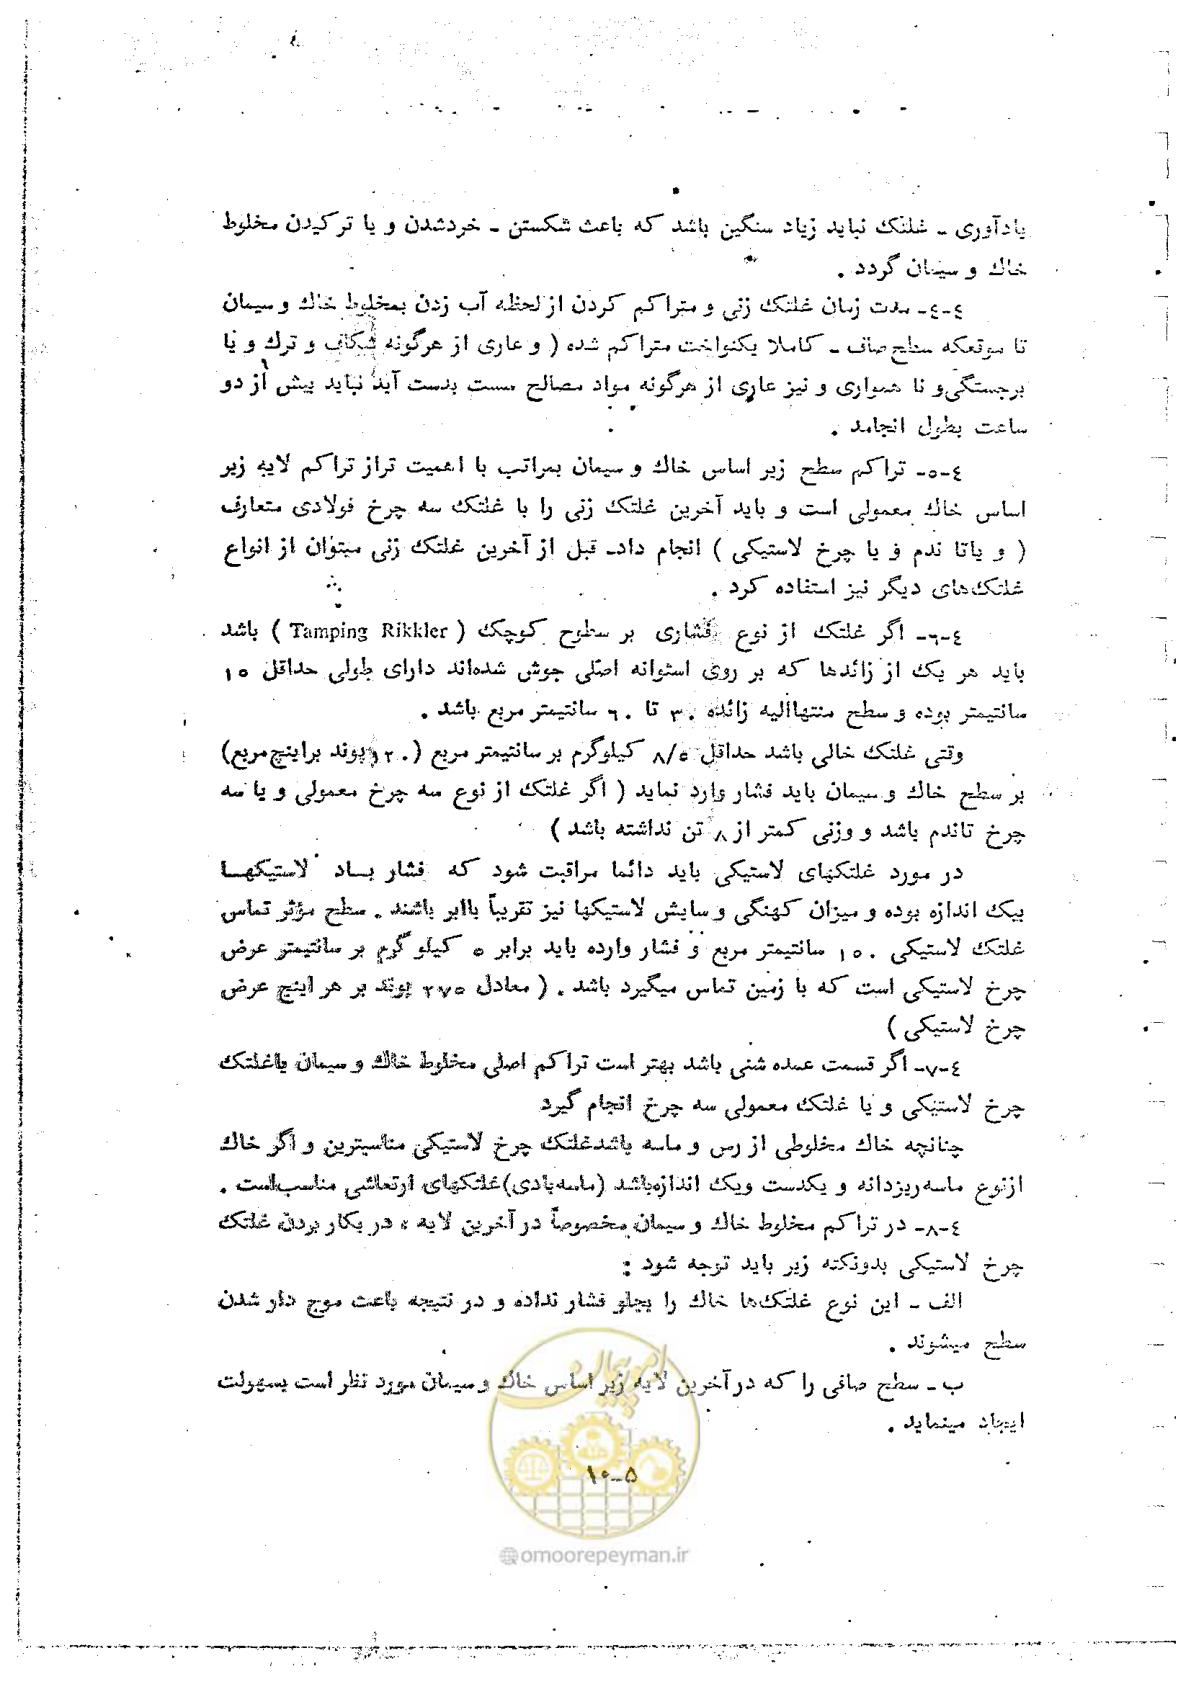 یادآوری - غلتك نباید زیاد سنگین باشد که باعث شکستن - خردشدن و یا ترکیدن مخلوط
خاك و سیمان گردد .
٤-٤- مدت زمان غلتك زنی و متراکم کردن از لحظه آب زدن بمخلوط خاك و سیمان
تا موقعیکه سطح صاف - کاملا یکنواخت متراکم شده ( و عاری از هرگونه شکاف و ترك و یا
برجستگی و نا همواری و نیز عاری از هرگونه مواد مصالح سست بدست آید نباید بیش از دو
ساعت بطول انجامد .
٤-٥- تراکم سطح زیر اساس خاك و سیمان بمراتب با اهمیت تراز تراکم لایه زیر
اساس خاك معمولی است و باید آخرین غلتك زنی را با غلتك سه چرخ فولادی متعارف
( و یاتا ندم و یا چرخ لاستیکی ) انجام داد- قبل از آخرین غلتك زنی میتوان از انواع
غلتك‌های دیگر نیز استفاده کرد .
٤-٦- اگر غلتك از نوع فشاری بر سطوح کوچك ( Tamping Rikkler ) باشد .
باید هر یك از زائدها که بر روی استوانه اصلی جوش شده‌اند دارای طولی حداقل ١٥
سانتیمتر بوده و سطح منتهاالیه زائده ٣٠ تا ٦٠ سانتیمتر مربع باشد .
وقتی غلتك خالی باشد حداقل ٨/٥ کیلوگرم بر سانتیمتر مربع ( ١٢٠ پوند براینچ مربع)
بر سطح خاك و سیمان باید فشار وارد نماید ( اگر غلتك از نوع سه چرخ معمولی و یا سه
چرخ تاندم باشد و وزنی کمتر از ٨ تن نداشته باشد )
در مورد غلتکهای لاستیکی باید دائما مراقبت شود که فشار بـاد لاستیکهـا
بیك اندازه بوده و میزان کهنگی و سایش لاستیکها نیز تقریباً باابر باشند . سطح مؤثر تماس
غلتك لاستیکی ١٥٠ سانتیمتر مربع و فشار وارده باید برابر ٥ کیلو گرم بر سانتیمتر عرض
چرخ لاستیکی است که با زمین تماس میگیرد باشد . ( معادل ٢٧٥ پوند بر هر اینچ عرض
چرخ لاستیکی )
٤-٧- اگر قسمت عمده شنی باشد بهتر است تراکم اصلی مخلوط خاك و سیمان باغلتك
چرخ لاستیکی و یا غلتك معمولی سه چرخ انجام گیرد
چنانچه خاك مخلوطی از رس و ماسه باشدغلتك چرخ لاستیکی مناسبترین و اگر خاك
ازنوع ماسه‌ریزدانه و یکدست ویك اندازه‌باشد (ماسه‌بادی)غلتکهای ارتعاشی مناسب‌است .
٤-٨- در تراکم مخلوط خاك و سیمان مخصوصاً در آخرین لایه ، در بکار بردن غلتك
چرخ لاستیکی بدونکته زیر باید توجه شود :
الف - این نوع غلتك‌ها خاك را بجلو فشار نداده و در نتیجه باعث موج دار شدن
سطح میشوند .
ب - سطح صافی را که در آخرین لایه زیر اساس خاك و سیمان مورد نظر است بسهولت
ایجاد مینماید .
امور پیمان
١٠-٥
@omoorepeyman.ir